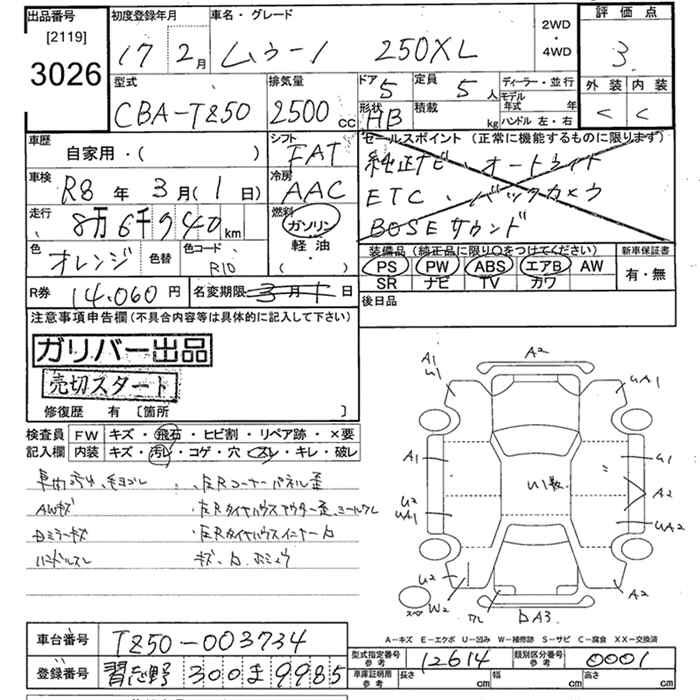 出品番号 [2119] 3026
初度登録年月 17 2月
車名・グレード ムラーノ 250XL
2WD・4WD
評価点 3
外装 C 内装 C
型式 CBA-TZ50
排気量 2500cc
ドア 5 形状 HB
定員 5人 積載 kg
ディーラー・並行
モデル年式 年
ハンドル 左・右
車歴 自家用・( )
シフト FAT
セールスポイント (正常に機能するものに限ります)
純正ナビ、オートライト
ETC、バックカメラ
BOSEサウンド
車検 R8年3月(1日)
冷房 AAC
走行 8万6千940km
燃料 ガソリン 軽油・( )
色 オレンジ 色替 色コード R10
装備品 (純正品に限り○をつけてください)
PS PW ABS エアB AW
SR ナビ TV カワ
新車保証書 有・無
R券 14,060円 名変期限 3月1日
後日品
注意事項申告欄 (不具合内容等は具体的に記入して下さい)
ガリバー出品
売切スタート
修復歴 有 [箇所 ]
検査員記入欄
FW キズ・飛石・ヒビ割・リペア跡・×要
内装 キズ・汚レ・コゲ・穴・スレ・キレ・破レ
AWキズ
ドミラーキズ
ハンドルスレ
A2
A1 U1
UA1
A1
U1
U1数
A2
U2
UA1
UA2
U2
W2
A2
A3
スペア
A-キズ E-エクボ U-凹み W-補修跡 S-サビ C-腐食 XX-交換済
車台番号 TZ50-003734
登録番号 習志野 300 ま 9985
型式指定番号 参考 12614
類別区分番号 参考 0001
車庫証明用 参考 長さ cm 幅 cm 高さ cm